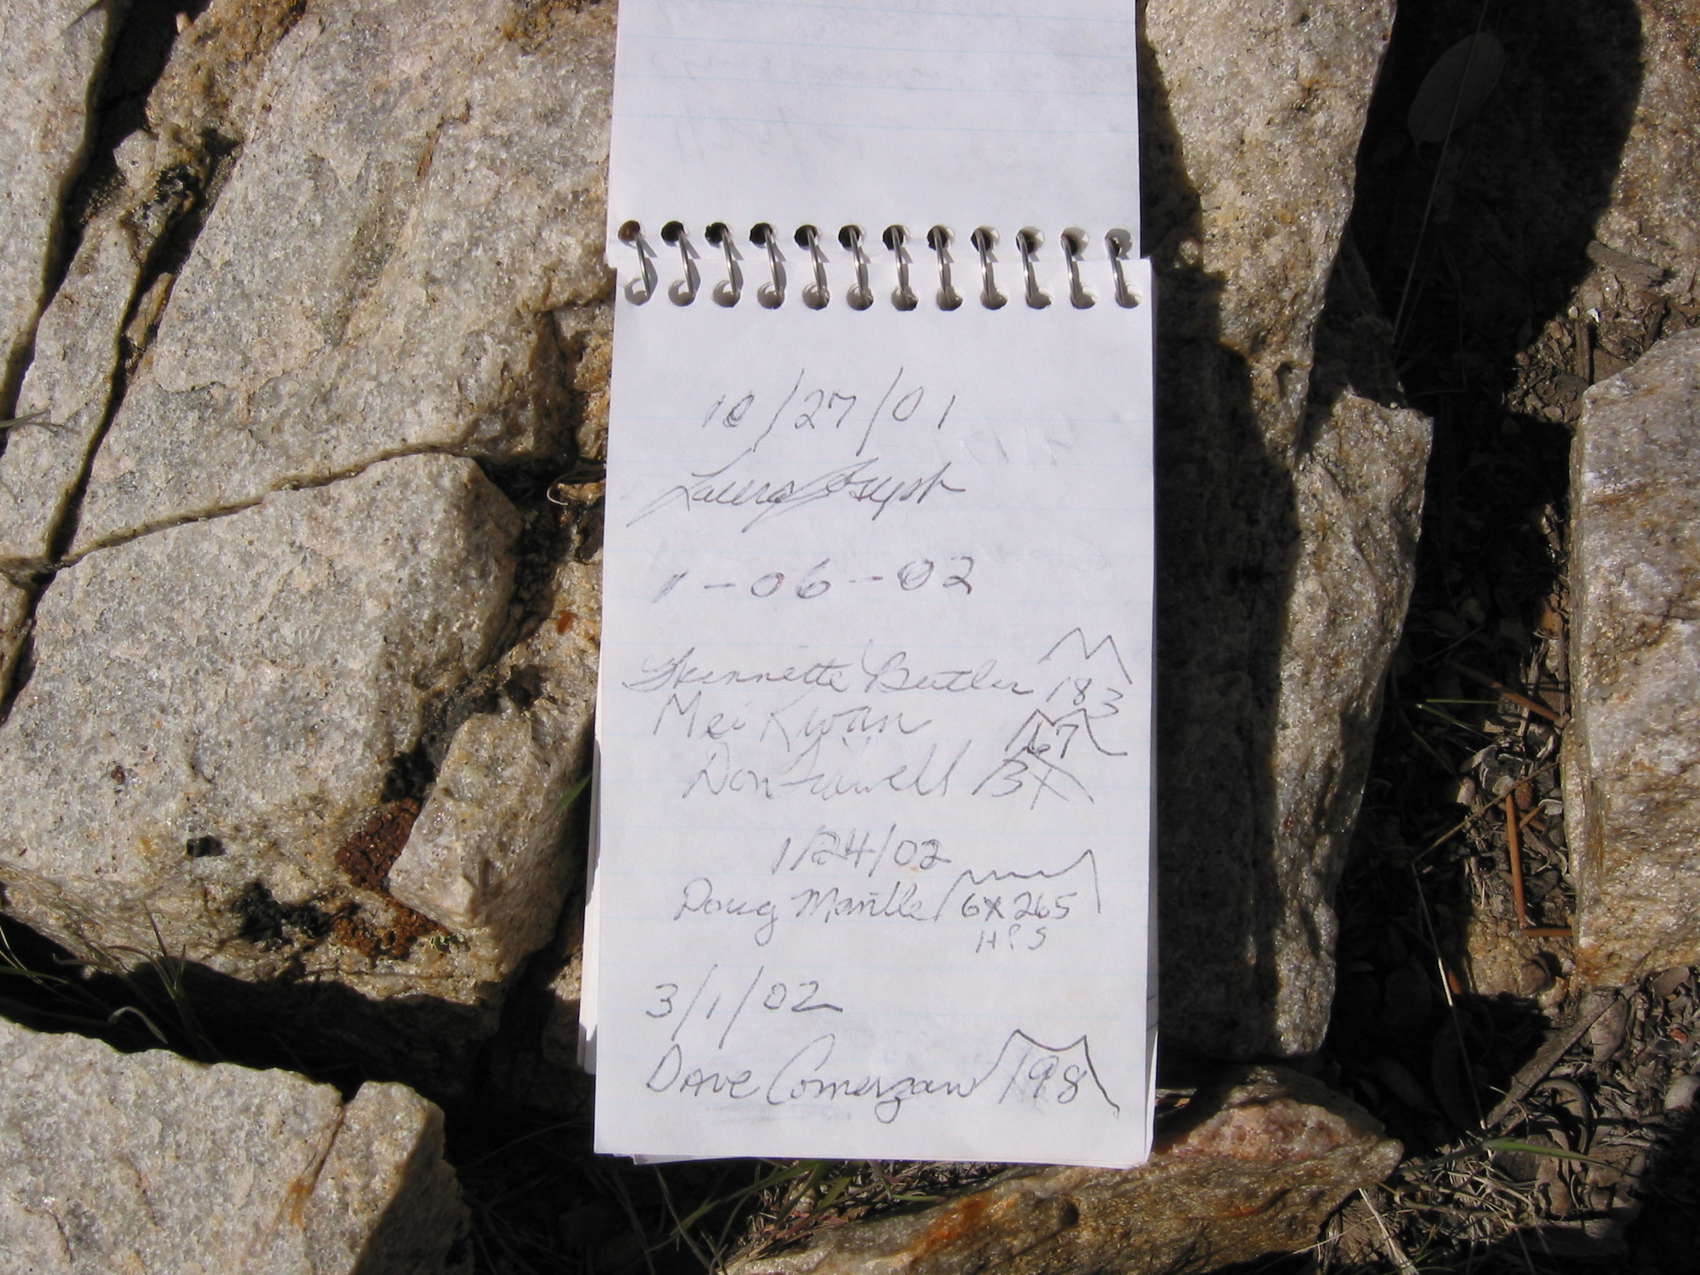 10/27/01
Laura Joseph
1-06-02
Butler 183
Mei Kwan 167
Don 3X
1/24/02
Doug Mantle 6X265
HPS
3/1/02
Dave Comerzan 198